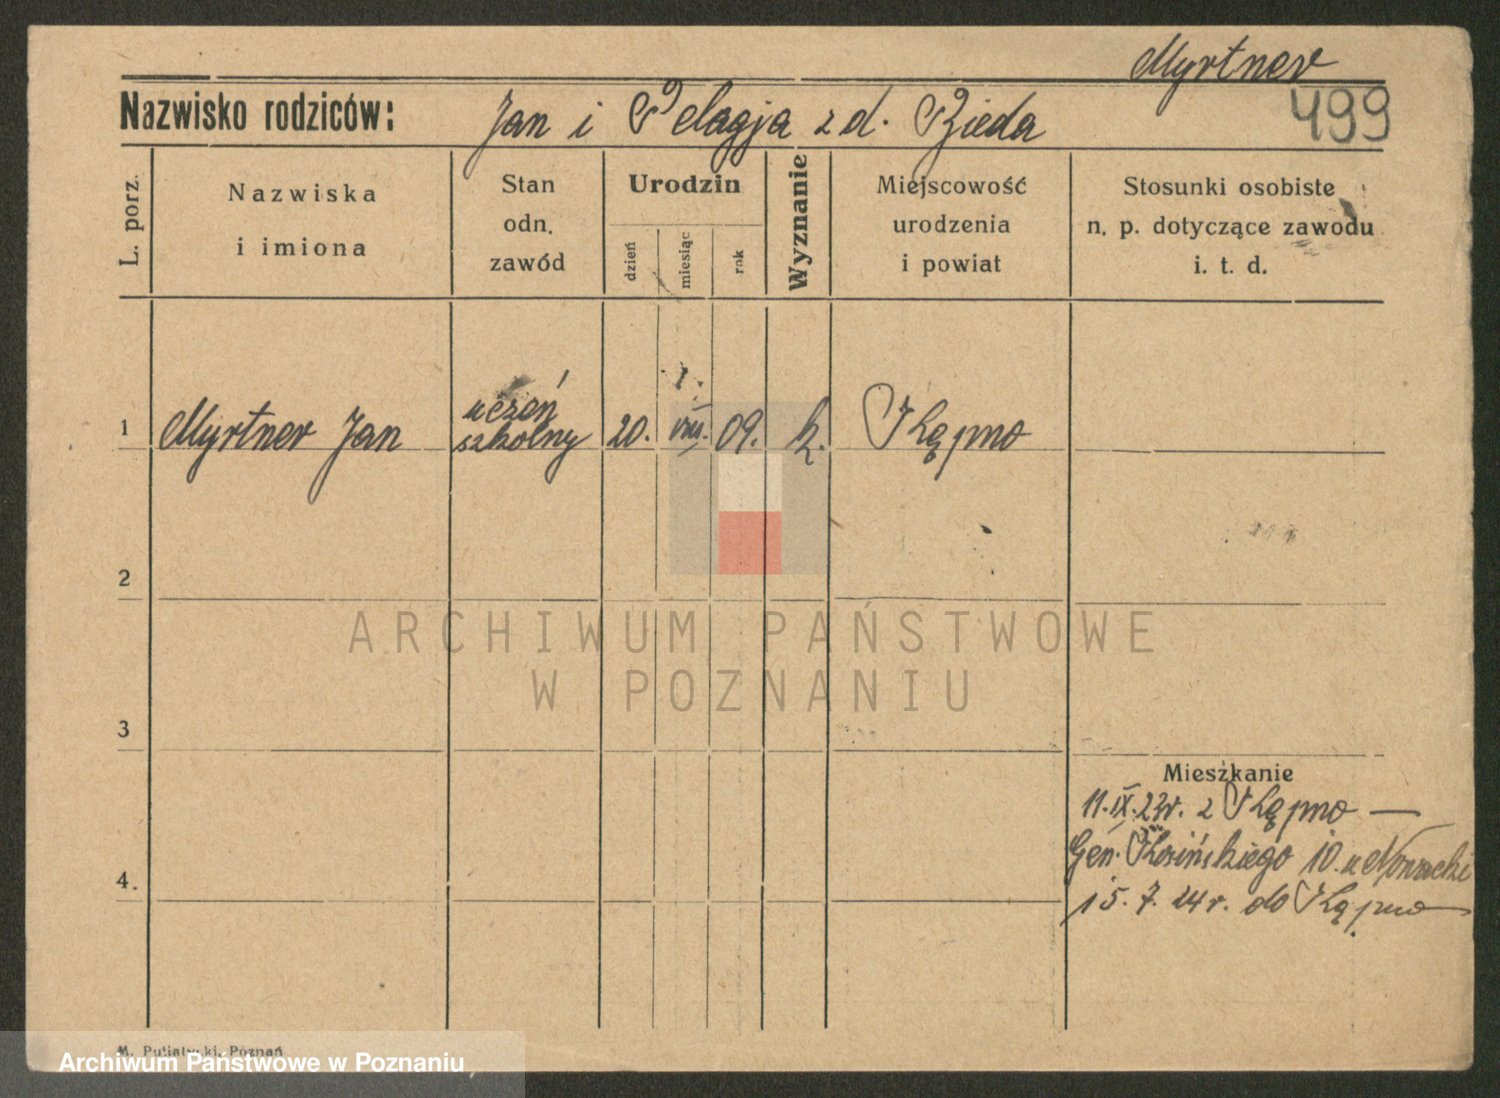 Myrtner
Nazwisko rodziców: Jan i Pelagja z d. Bieda
499
L. porz.
Nazwiska
i imiona
Stan
odn.
zawód
Urodzin
dzień
miesiąc
rok
Wyznanie
Miejscowość
urodzenia
i powiat
Stosunki osobiste
n. p. dotyczące zawodu
i. t. d.
1 Myrtner Jan
uczeń
szkolny
20. VIII. 09. k. Kępno
2
3
4.
Mieszkanie
11.IX.23r. z Kępno —
Gen. Kosińskiego 10. u Nowacki
15. 7. 24 r. do Kępno
ARCHIWUM PAŃSTWOWE
W POZNANIU
M. Putiatycki, Poznań
Archiwum Państwowe w Poznaniu